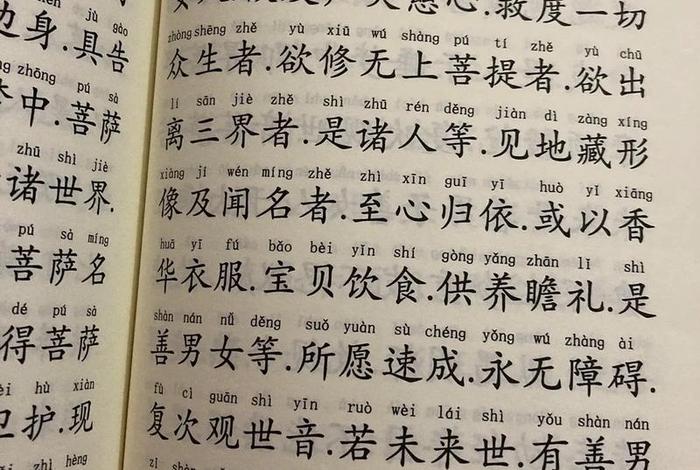 jù gào
边身.具告
zhōng pú sà
中.菩萨
zhū shì jiè
诸世界.
pú sà míng
菩萨名
dé pú sà
得菩萨
hù xiàn
卫护.现
慈心.救度一切
zhòng shēng zhě yù xiū wú shàng pú tí zhě yù chū
众生者.欲修无上菩提者.欲出
lí sān jiè zhě shì zhū rén děng jiàn dì zàng xíng
离三界者.是诸人等.见地藏形
xiàng jí wén míng zhě zhì xīn guī yī huò yǐ xiāng
像及闻名者.至心归依.或以香
huā yī fú bǎo bèi yǐn shí gòng yǎng zhān lǐ shì
华衣服.宝贝饮食.供养瞻礼.是
shàn nán nǚ děng suǒ yuàn sù chéng yǒng wú zhàng ài
善男女等.所愿速成.永无障碍.
fù cì guān shì yīn ruò wèi lái shì yǒu shàn nán
复次观世音.若未来世.有善男